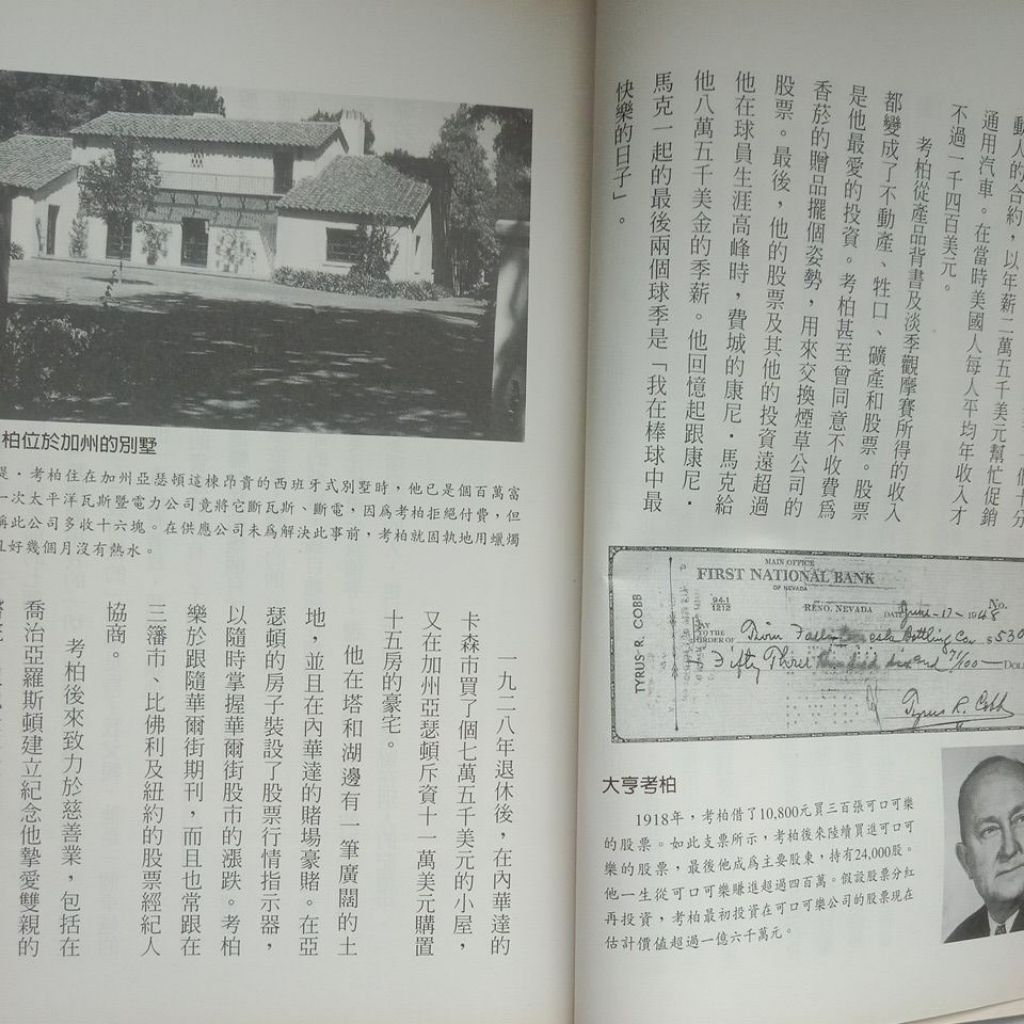 動人的合約，以年薪二萬五千美元幫忙促銷
通用汽車。在當時美國人每人平均年收入才
不過一千四百美元。
考柏從產品背書及淡季觀摩賽所得的收入
都變成了不動產、牲口、礦產和股票。股票
是他最愛的投資。考柏甚至曾同意不收費爲
香菸的贈品擺個姿勢，用來交換煙草公司的
股票。最後，他的股票及其他的投資遠超過
他在球員生涯高峰時，費城的康尼．馬克給
他八萬五千美金的季薪。他回憶起跟康尼．
馬克一起的最後兩個球季是「我在棒球中最
快樂的日子」。
MAIN OFFICE
FIRST NATIONAL BANK
OF NEVADA
94-1
1212
RENO, NEVADA
DATE June 17 1948
No.
PAY TO THE ORDER OF
Twin Falls Bottling Co. $530
Fifty Three hundred and 71/100 DOL
TYRUS R. COBB
Tyrus R. Cobb
大亨考柏
1918年，考柏借了10,800元買三百張可口可樂
的股票。如此支票所示，考柏後來陸續買進可口可
樂的股票，最後他成爲主要股東，持有24,000股。
他一生從可口可樂賺進超過四百萬。假設股票分紅
再投資，考柏最初投資在可口可樂公司的股票現在
估計價值超過一億六千萬元。
柏位於加州的別墅
是．考柏住在加州亞瑟頓這棟昂貴的西班牙式別墅時，他已是個百萬富
一次太平洋瓦斯暨電力公司竟將它斷瓦斯、斷電，因爲考柏拒絕付費，但
稱此公司多收十六塊。在供應公司未爲解決此事前，考柏就固執地用蠟燭
且好幾個月沒有熱水。
一九二八年退休後，在內華達的
卡森市買了個七萬五千美元的小屋，
又在加州亞瑟頓斥資十一萬美元購置
十五房的豪宅。
他在塔和湖邊有一筆廣闊的土
地，並且在內華達的賭場豪賭。在亞
瑟頓的房子裝設了股票行情指示器，
以隨時掌握華爾街股市的漲跌。考柏
樂於跟隨華爾街期刊，而且也常跟在
三藩市、比佛利及紐約的股票經紀人
協商。
考柏後來致力於慈善業，包括在
喬治亞羅斯頓建立紀念他摯愛雙親的